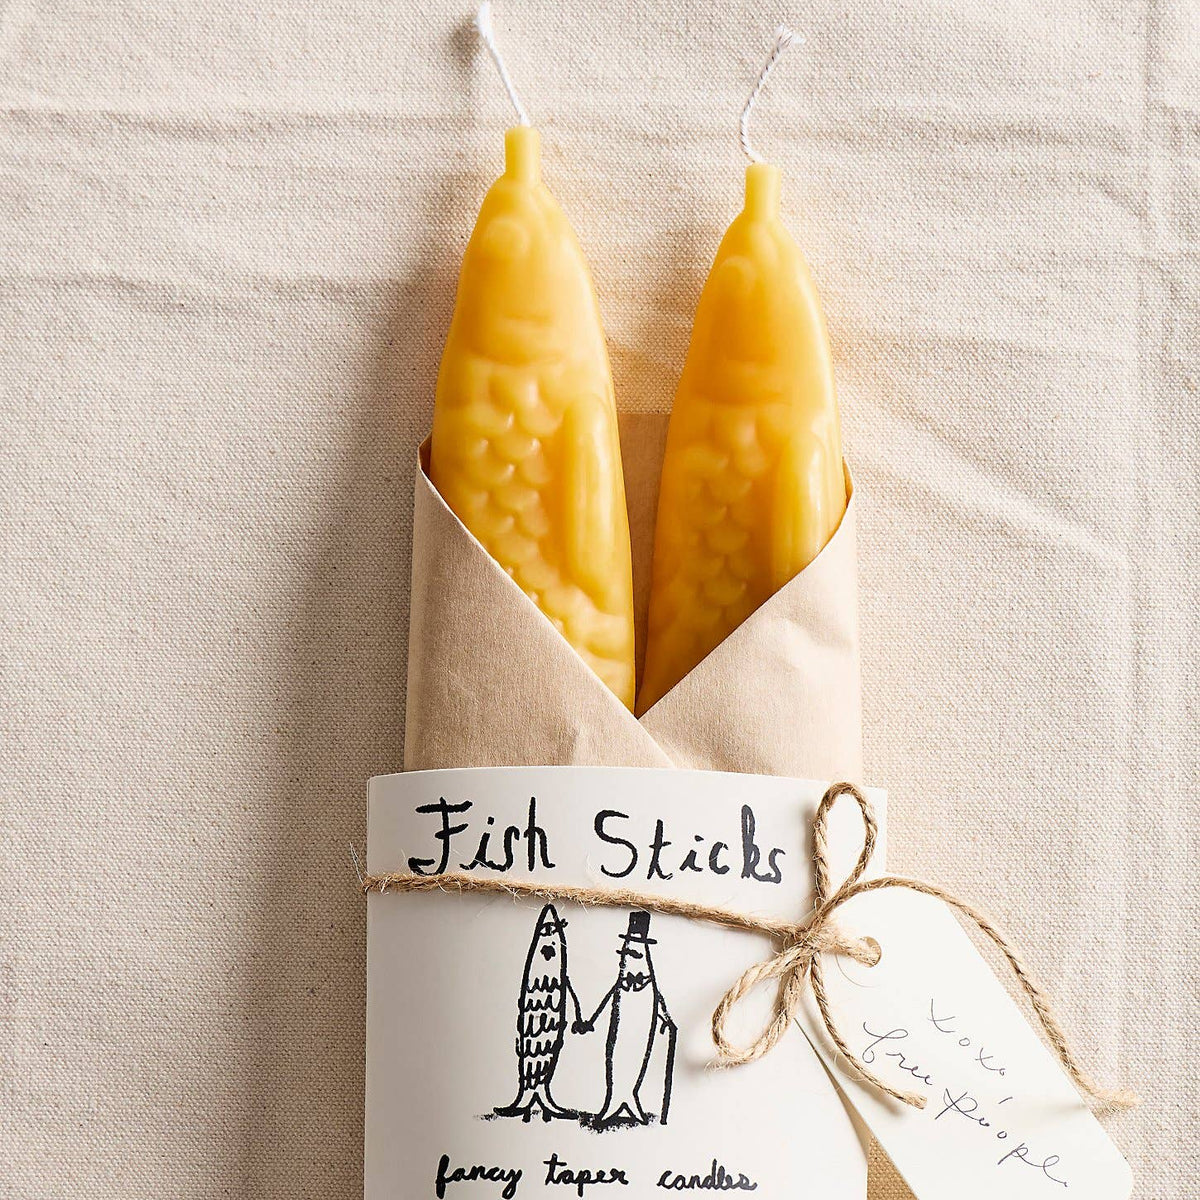 Fish Sticks
fancy taper candles
xoxo
free people